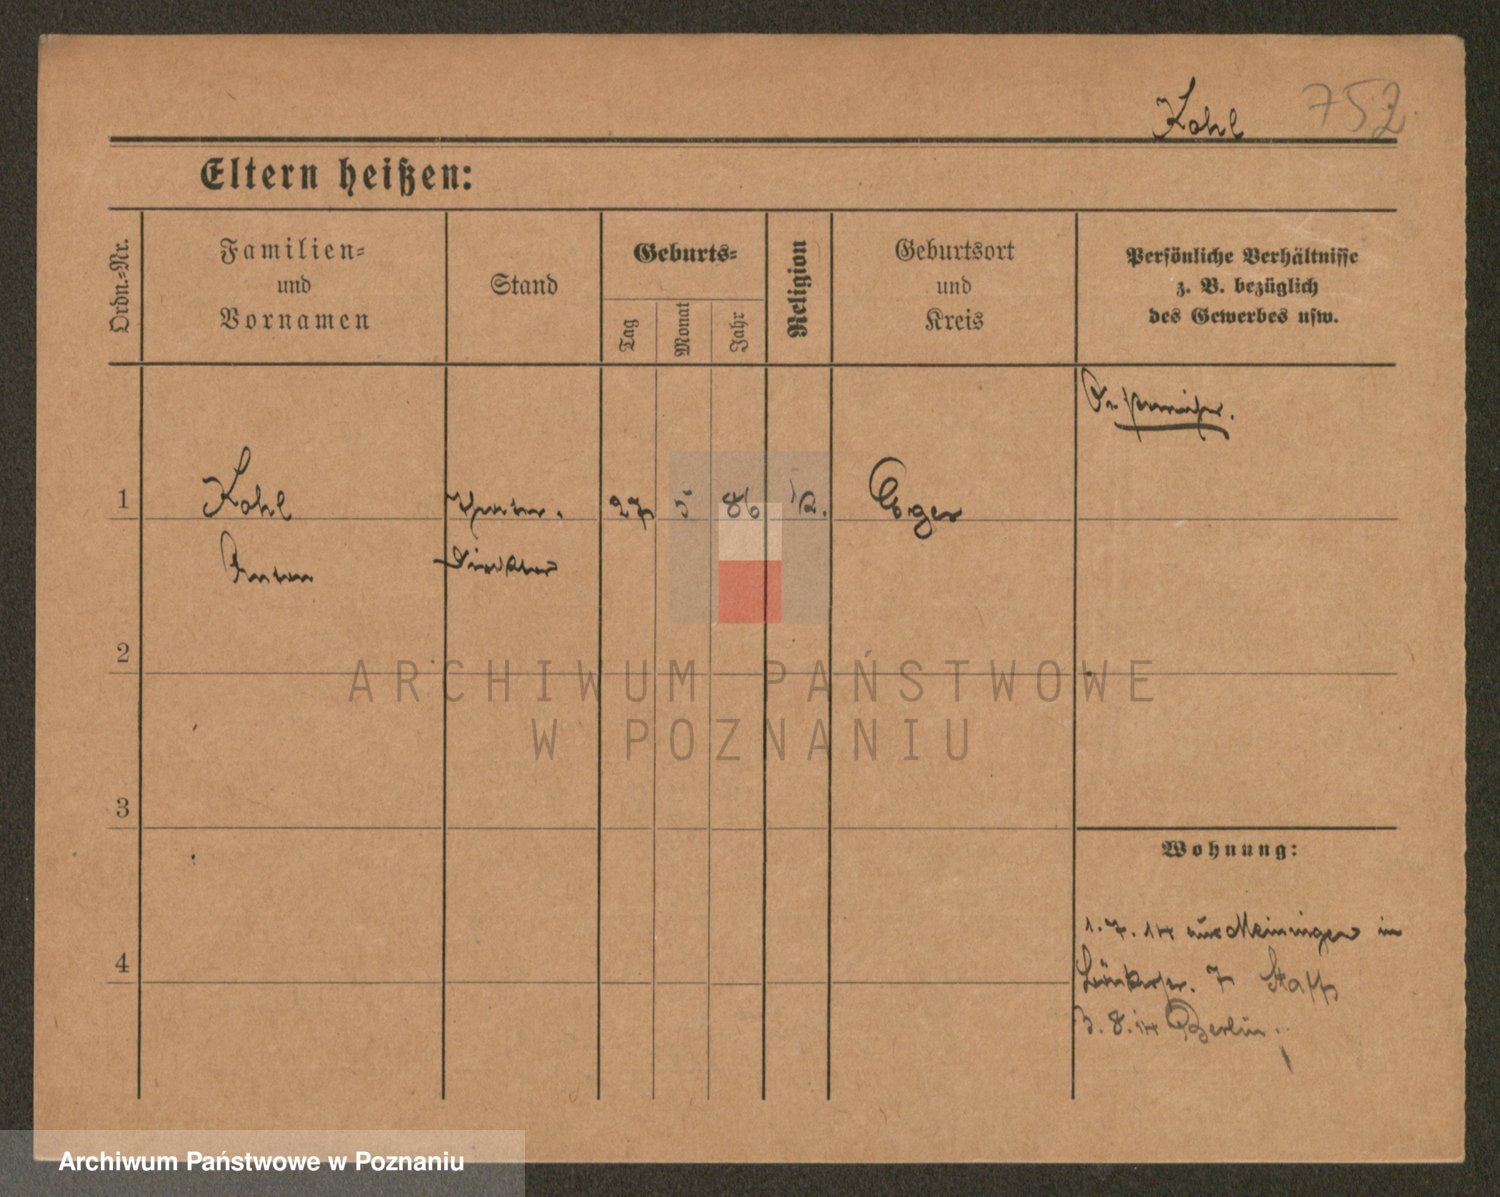 Kohl 752
Eltern heißen:
Ordn.-Nr.
Familien-
und
Vornamen
Stand
Geburts-
Tag
Monat
Jahr
Religion
Geburtsort
und
Kreis
Persönliche Verhältnisse
z. B. bezüglich
des Gewerbes usw.
Oesterreicher.
1 Kohl Theater. 27 5 86 k. Eger
Anton Direktor
2
3
4
Wohnung:
1. 7. 14 aus Meiningen in
7
3. 8. 14 Berlin.
ARCHIWUM PAŃSTWOWE
W POZNANIU
Archiwum Państwowe w Poznaniu